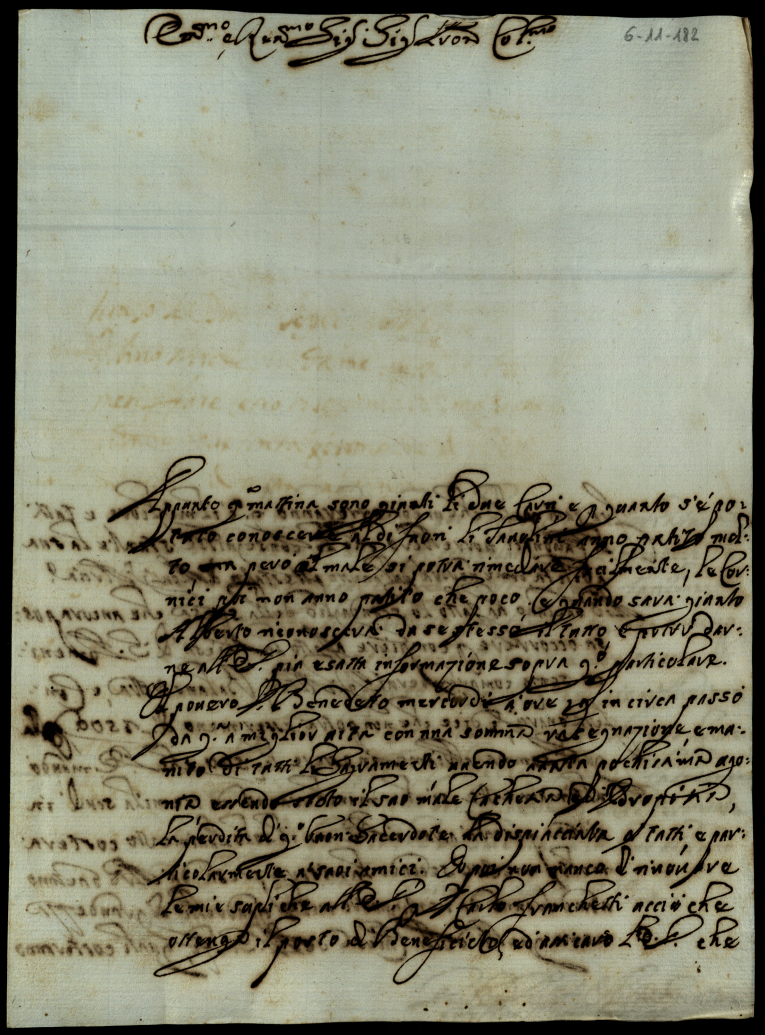 e Rev.mo Sig.r Sig.r Pron Col.mo
6-11-182
questa mattina sono gionti li due Carri e p quanto s'é po:
tuto conoscere al di fuori li anno patito mol:
to ma peró al male si potrá rimediare facilmente, le Cor:
nici poi non anno patito che poco, e quando sará gionto
Alberto riconoscerá da se stesso il tutto e potrá dar:
ne all piú esatta informazione sopra q.o particolare.
Il povero D. Benedeto mercordí a ore in circa passó
da q.a a miglior vita con una somma rasegnazione e mu:
nito di tutti li Sagramenti avendo auuta pochissima ago:
nia essendo stato il suo male
la perdita di q.o buon Sacerdote ha dispiaciuta a tutti e par:
ticolarmente a suoi amici. Io poi non manco di rinovare
le mie supliche all p il Carlo Franchetti acció che
ottenga il posto di Benefiziato, ed assicuro che